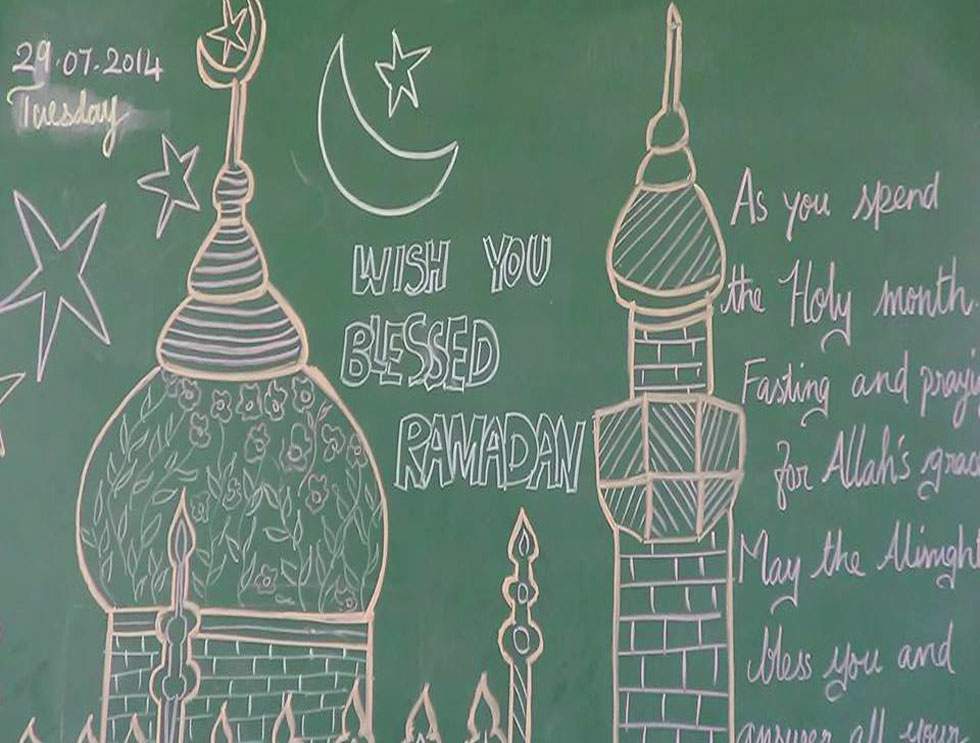 29.07.2014
Tuesday
WISH YOU
BLESSED
RAMADAN
As you spend
the Holy month
Fasting and
for Allah's
May the
bless you and
answer all your